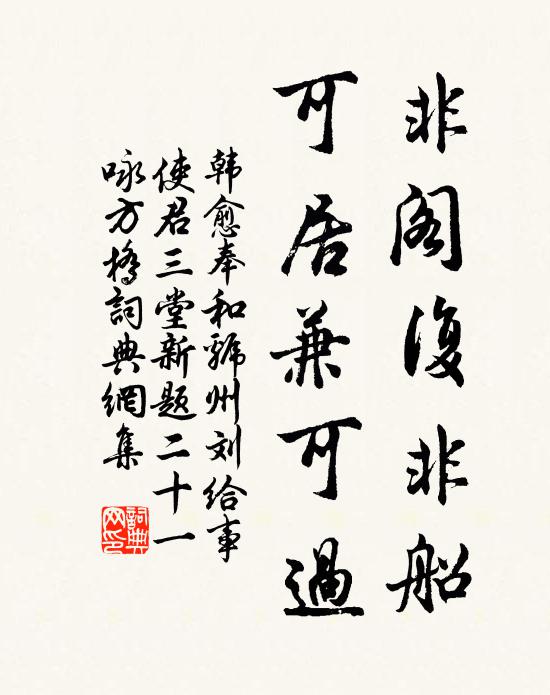 非阁復非船
可居兼可過
韩愈奉和虢州刘给事
使君三堂新题二十一
咏方橋詞典網集
詞典
网印